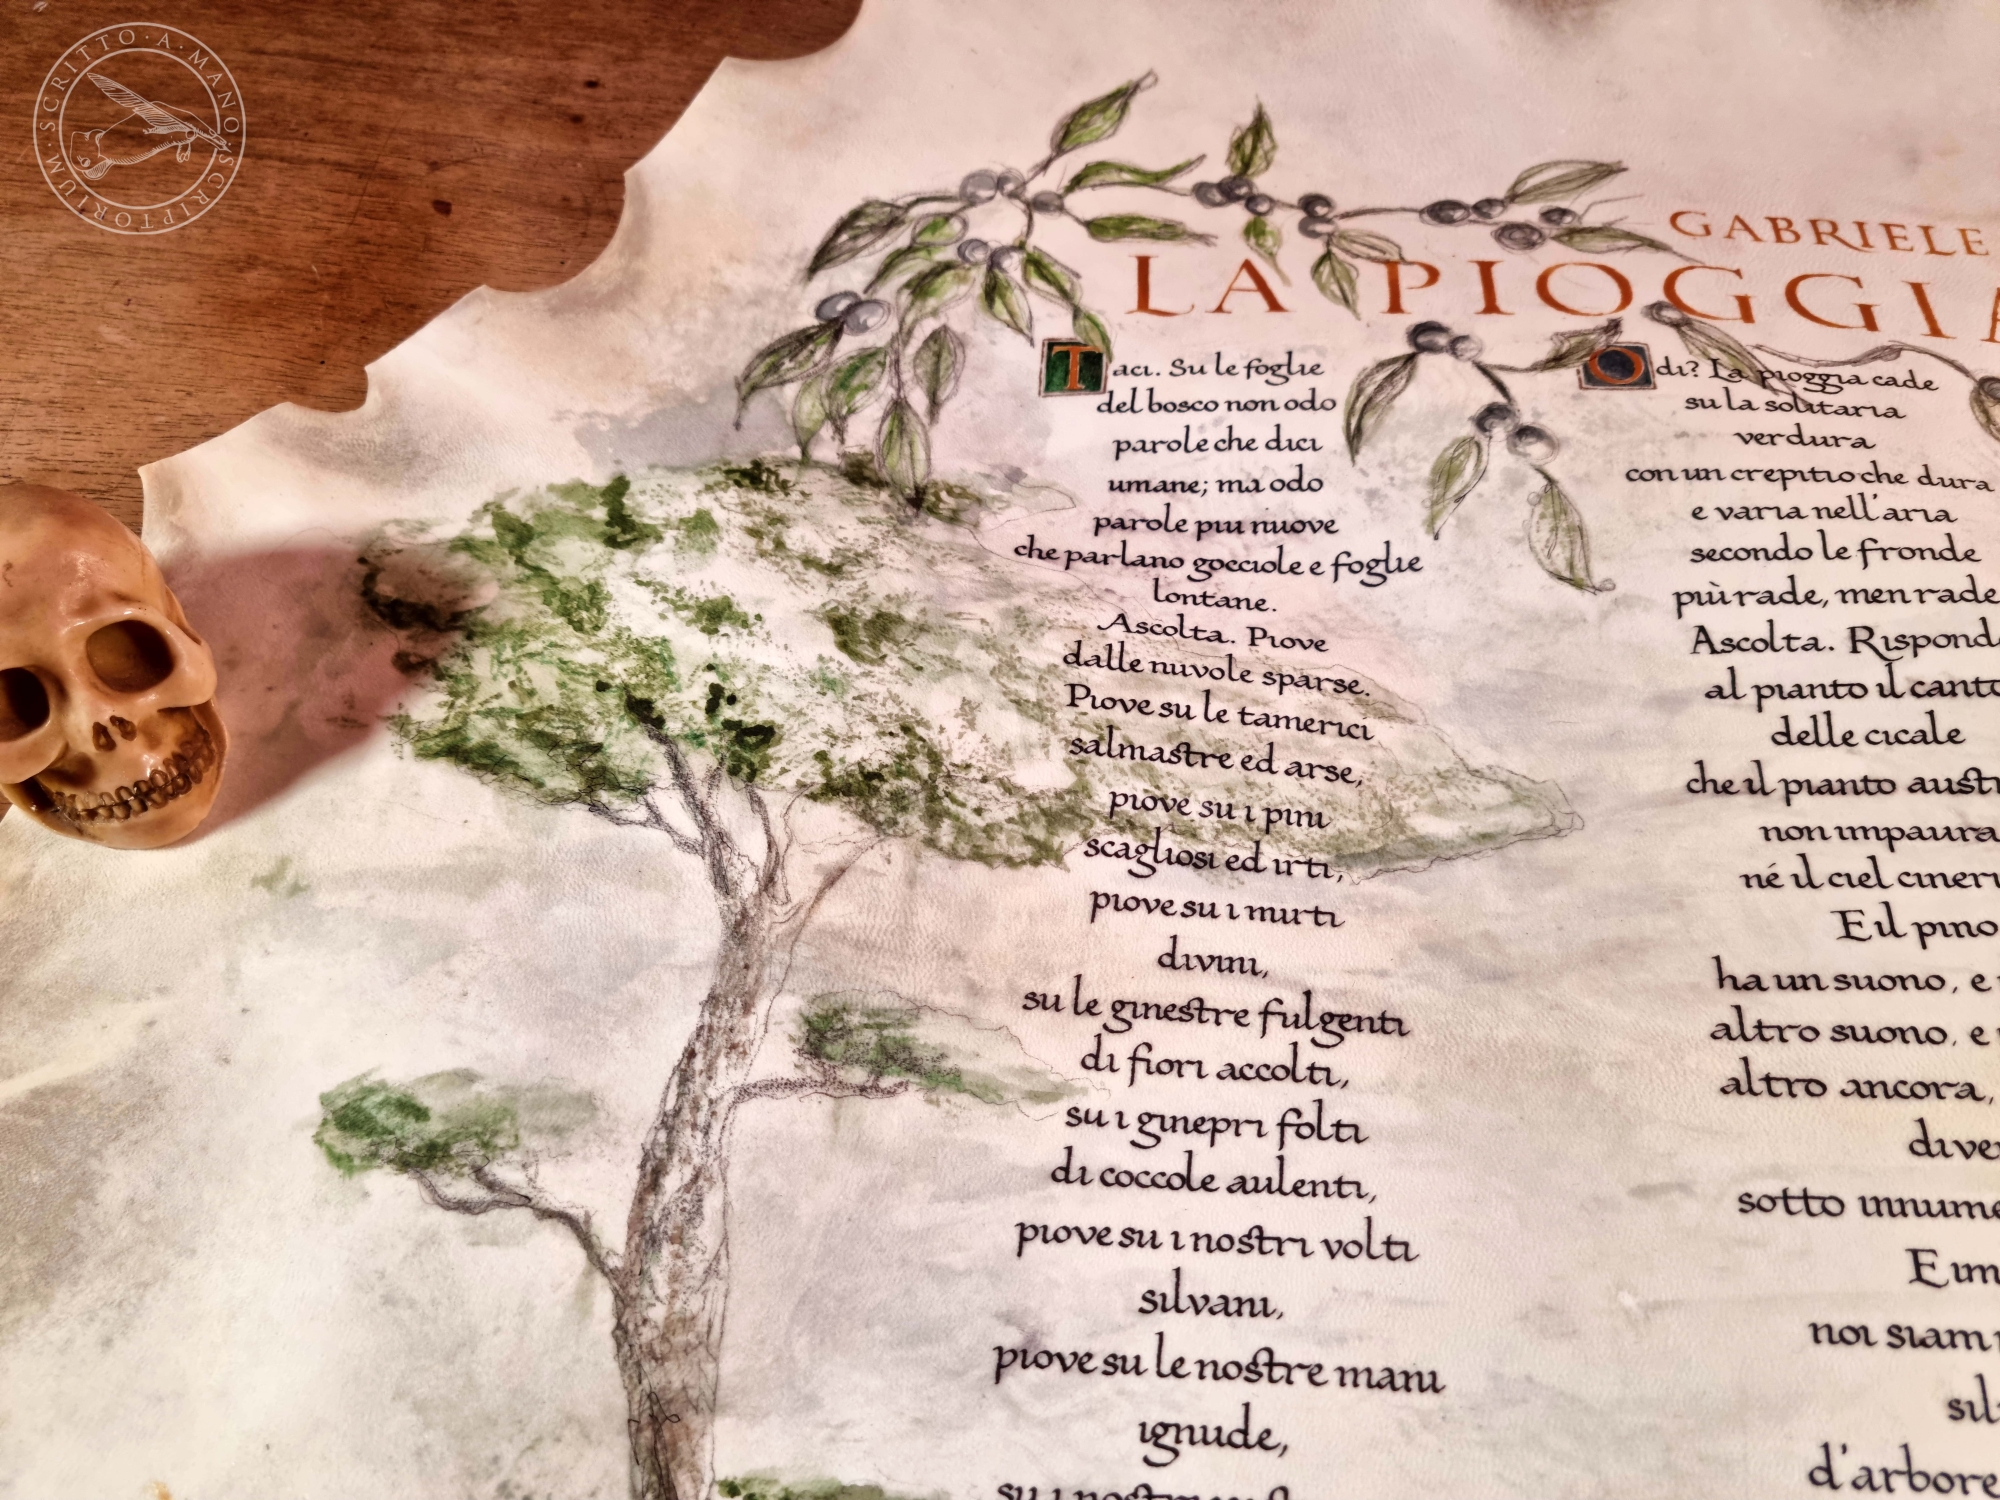 SCRITTO · A · MANO · SCRIPTORIUM ·
GABRIELE
LA PIOGGIA
Taci. Su le foglie
del bosco non odo
parole che dici
umane; ma odo
parole piu nuove
che parlano gocciole e foglie
lontane.
Ascolta. Piove
dalle nuvole sparse.
Piove su le tamerici
salmastre ed arse,
piove su i pini
scagliosi ed irti,
piove su i mirti
divini,
su le ginestre fulgenti
di fiori accolti,
su i ginepri folti
di coccole aulenti,
piove su i nostri volti
silvani,
piove su le nostre mani
ignude,
su i nostri
Odi? La pioggia cade
su la solitaria
verdura
con un crepitio che dura
e varia nell'aria
secondo le fronde
più rade, men rade
Ascolta. Risponde
al pianto il canto
delle cicale
che il pianto austr
non impaura
né il ciel cineri
E il pino
ha un suono, e
altro suono, e
altro ancora,
dive
sotto innume
E im
noi siam
sil
d'arbore